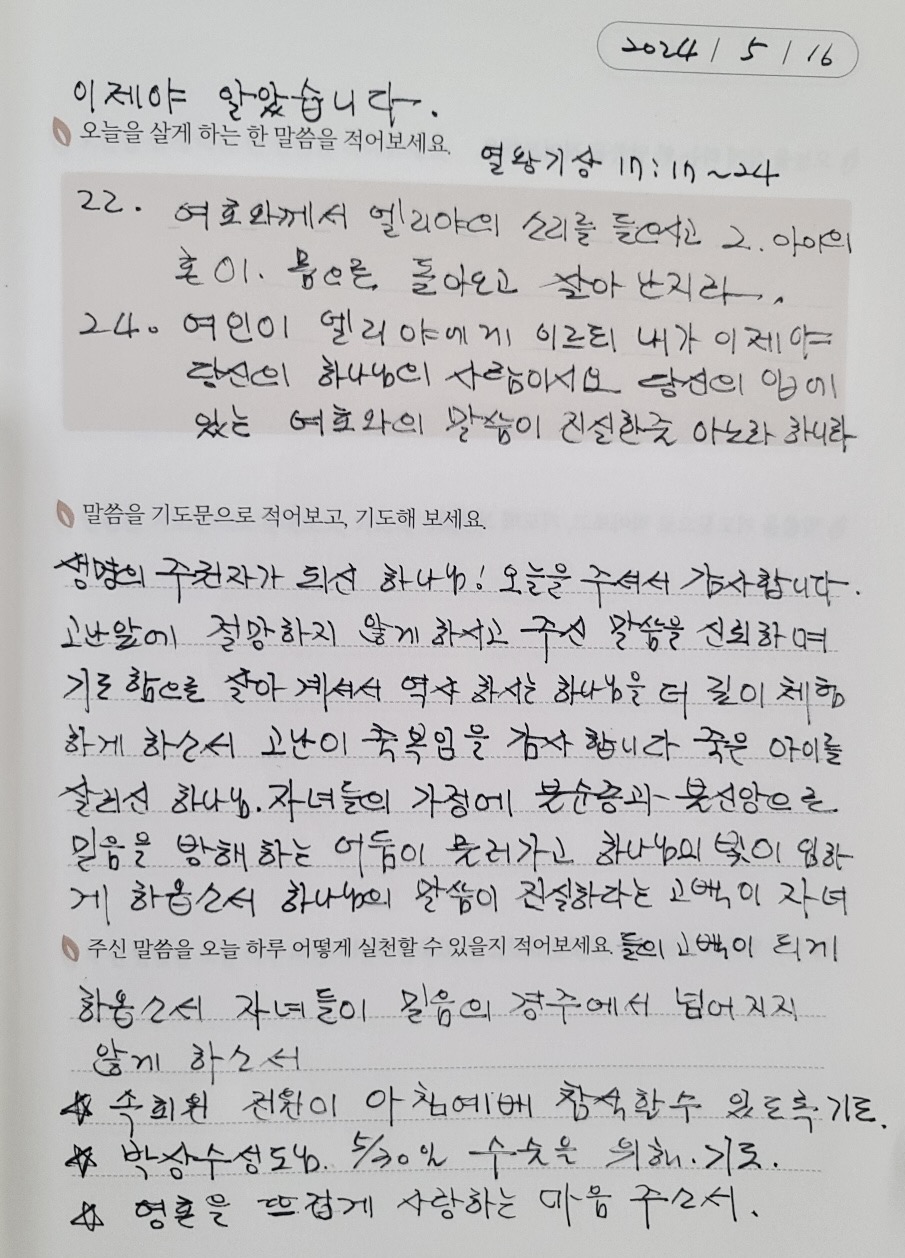 2024 / 5 / 16
이제야 알았습니다.
오늘을 살게 하는 한 말씀을 적어보세요.
열왕기상 17:17~24
22. 여호와께서 엘리야의 소리를 들으시고 그. 아이의
혼이. 몸으로 돌아오고 살아 난지라.
24. 여인이 엘리야에게 이르되 내가 이제야
당신의 하나님의 사람이시요 당신의 입에
있는 여호와의 말씀이 진실한줄 아노라 하니라
말씀을 기도문으로 적어보고, 기도해 보세요.
생명의 주권자가 되신 하나님! 오늘을 주셔서 감사합니다.
고난앞에 절망하지 않게 하시고 주신 말씀을 신뢰하며
기도함으로 살아 계셔서 역사 하시는 하나님을 더 깊이 체험
하게 하소서 고난이 축복임을 감사 합니다 죽은 아이를
살리신 하나님. 자녀들의 가정에 불순종과 불신앙으로
믿음을 방해하는 어둠이 물러가고 하나님의 빛이 임하
게 하옵소서 하나님의 말씀이 진실하라는 고백이 자녀
주신 말씀을 오늘 하루 어떻게 실천할 수 있을지 적어보세요. 들의 고백이 되게
하옵소서 자녀들이 믿음의 경주에서 넘어지지
않게 하소서
☆ 속회원 전원이 아침예배 참석할수 있도록 기도.
☆ 박상수성도님. 5/30일 수술을 위해. 기도.
☆ 영혼을 뜨겁게 사랑하는 마음 주소서.